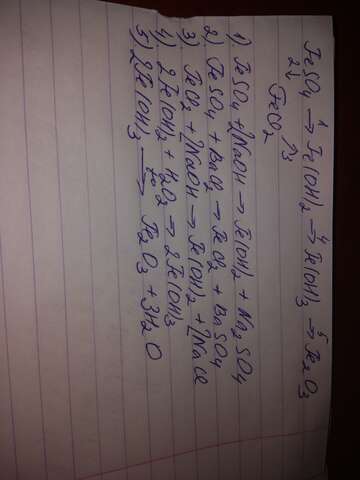 FeSO4 →1 Fe(OH)2 →4 Fe(OH)3 →5 Fe2O3
2↓ ↗3
FeCl2
1) FeSO4 + 2NaOH → Fe(OH)2 + Na2SO4
2) FeSO4 + BaCl2 → FeCl2 + BaSO4
3) FeCl2 + 2NaOH → Fe(OH)2 + 2NaCl
4) 2Fe(OH)2 + H2O2 → 2Fe(OH)3
5) 2Fe(OH)3 →t° Fe2O3 + 3H2O